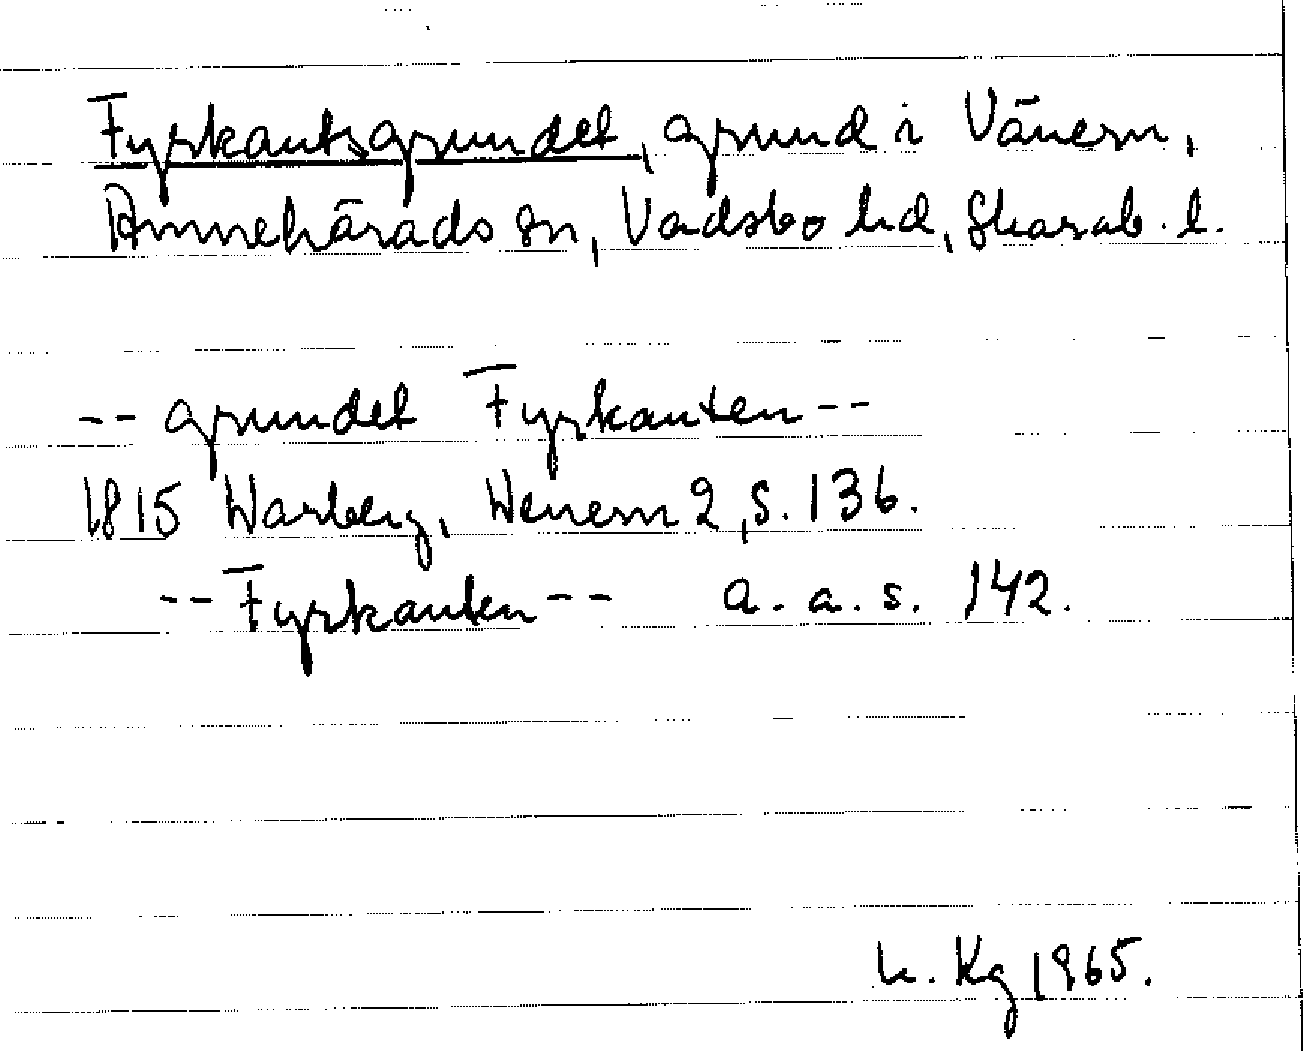 Fyrkantsgrundet, grund i Vänern,
Amnehärads sn, Vadsbo hd, Skarab. l.
-- grundet Fyrkanten --
1815 Warberg, Wenern 2, s. 136.
-- Fyrkanten -- a. a. s. 142.
K. Kg 1965.